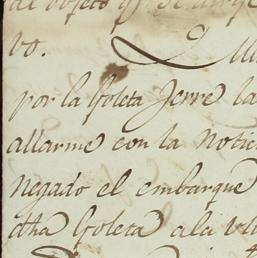 al objeto qe. se dirige
vo.
por la Goleta Jerre la
allarme con la Notic
negado el embarque
dha Goleta a la